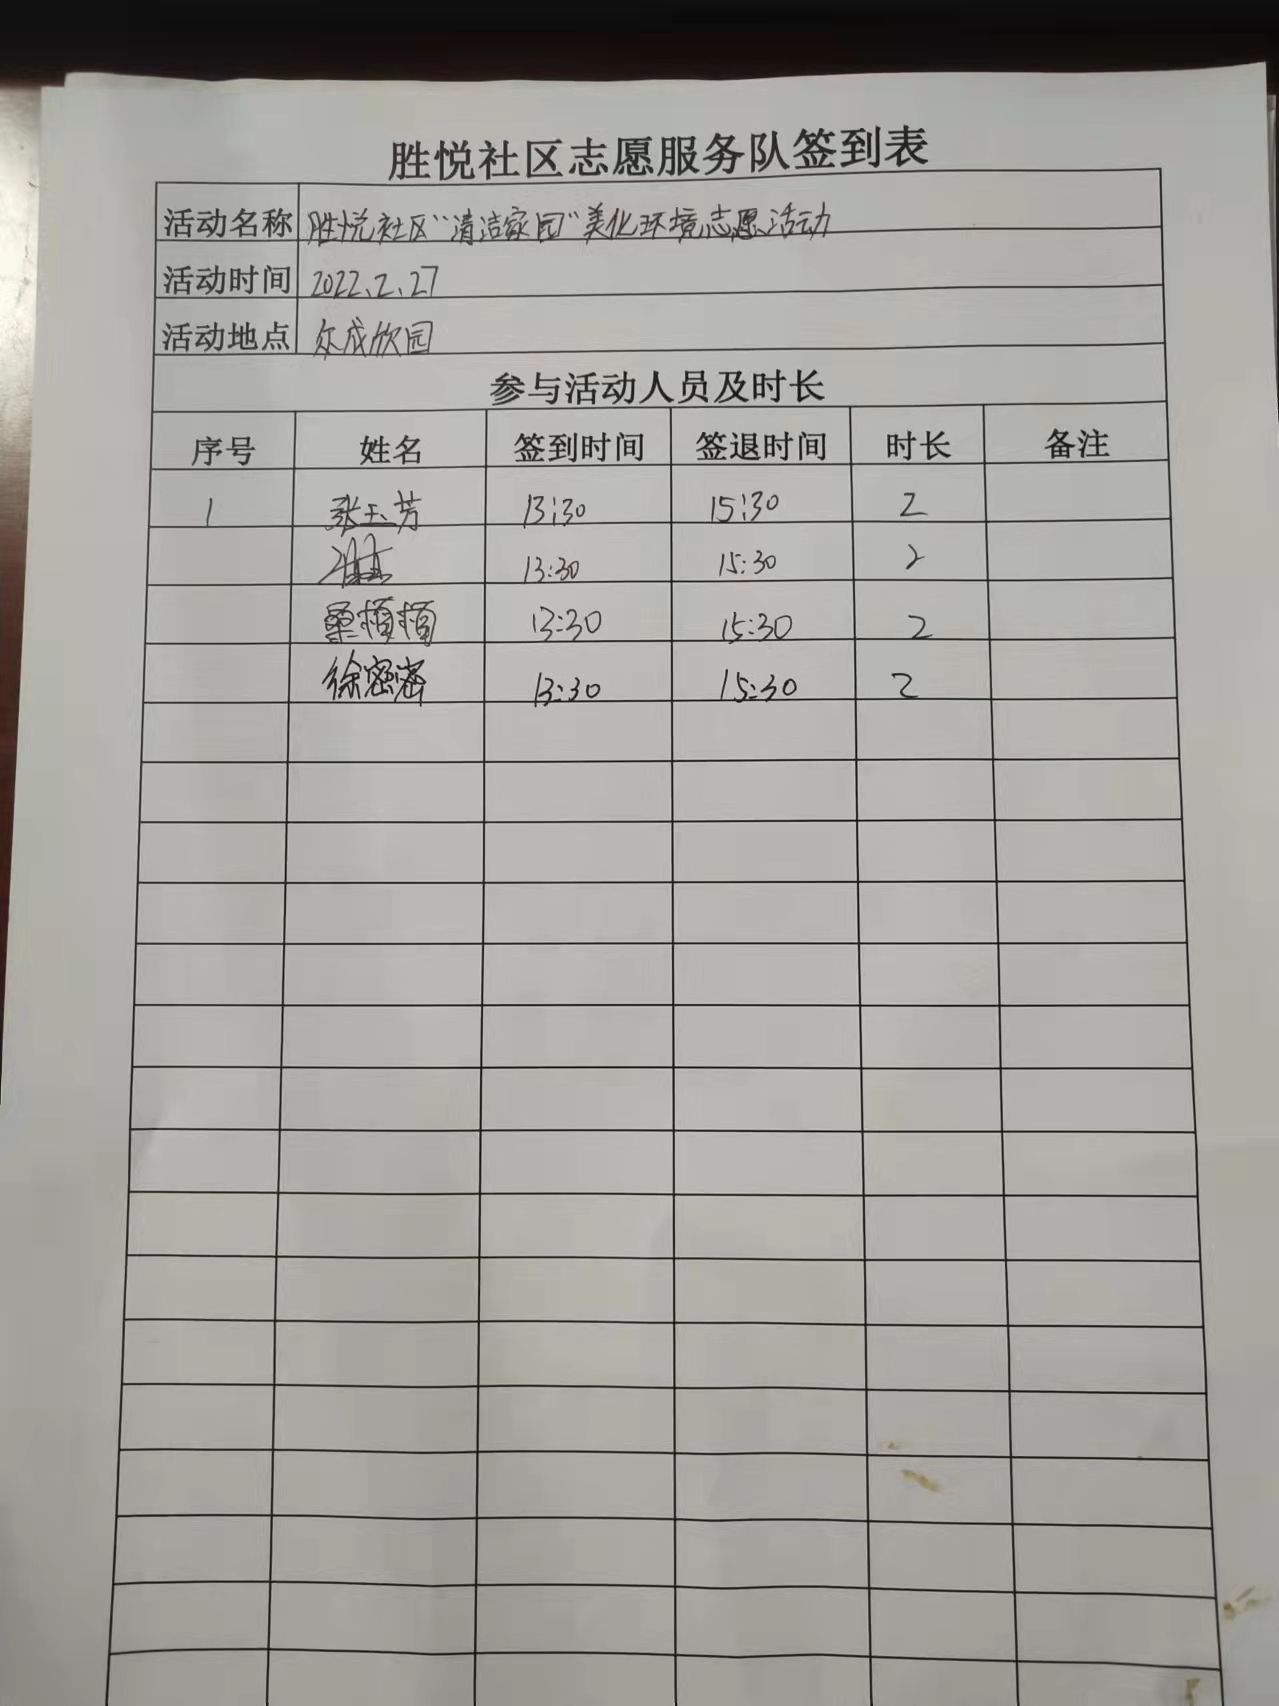 胜悦社区志愿服务队签到表
活动名称 胜悦社区“清洁家园”美化环境志愿活动
活动时间 2022、2、27
活动地点 众成欣园
参与活动人员及时长
序号 姓名 签到时间 签退时间 时长 备注
1 张玉芳 13:30 15:30 2
13:30 15:30 2
桑 13:30 15:30 2
徐密密 13:30 15:30 2